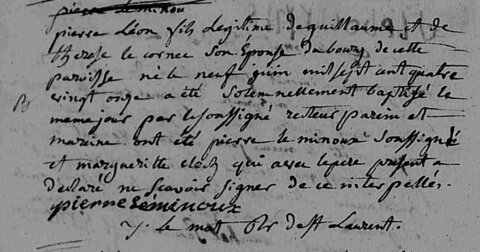 pierre le minou
pierre Léon fils Legitime de guillaume et de
therese le cornec son Epouse du bourg de cette
paroisse né le neuf juin mil sept cent quatre
vingt onze a été solemnellement baptisé le
meme jour par le soussigné recteur parein et
mareine ont été pierre le minoux soussigné
et margueritte qui avec le pere present a
declaré ne scavoir signer de ce interpellés.
pierre Leminoux
y. le mat de St Laurent.